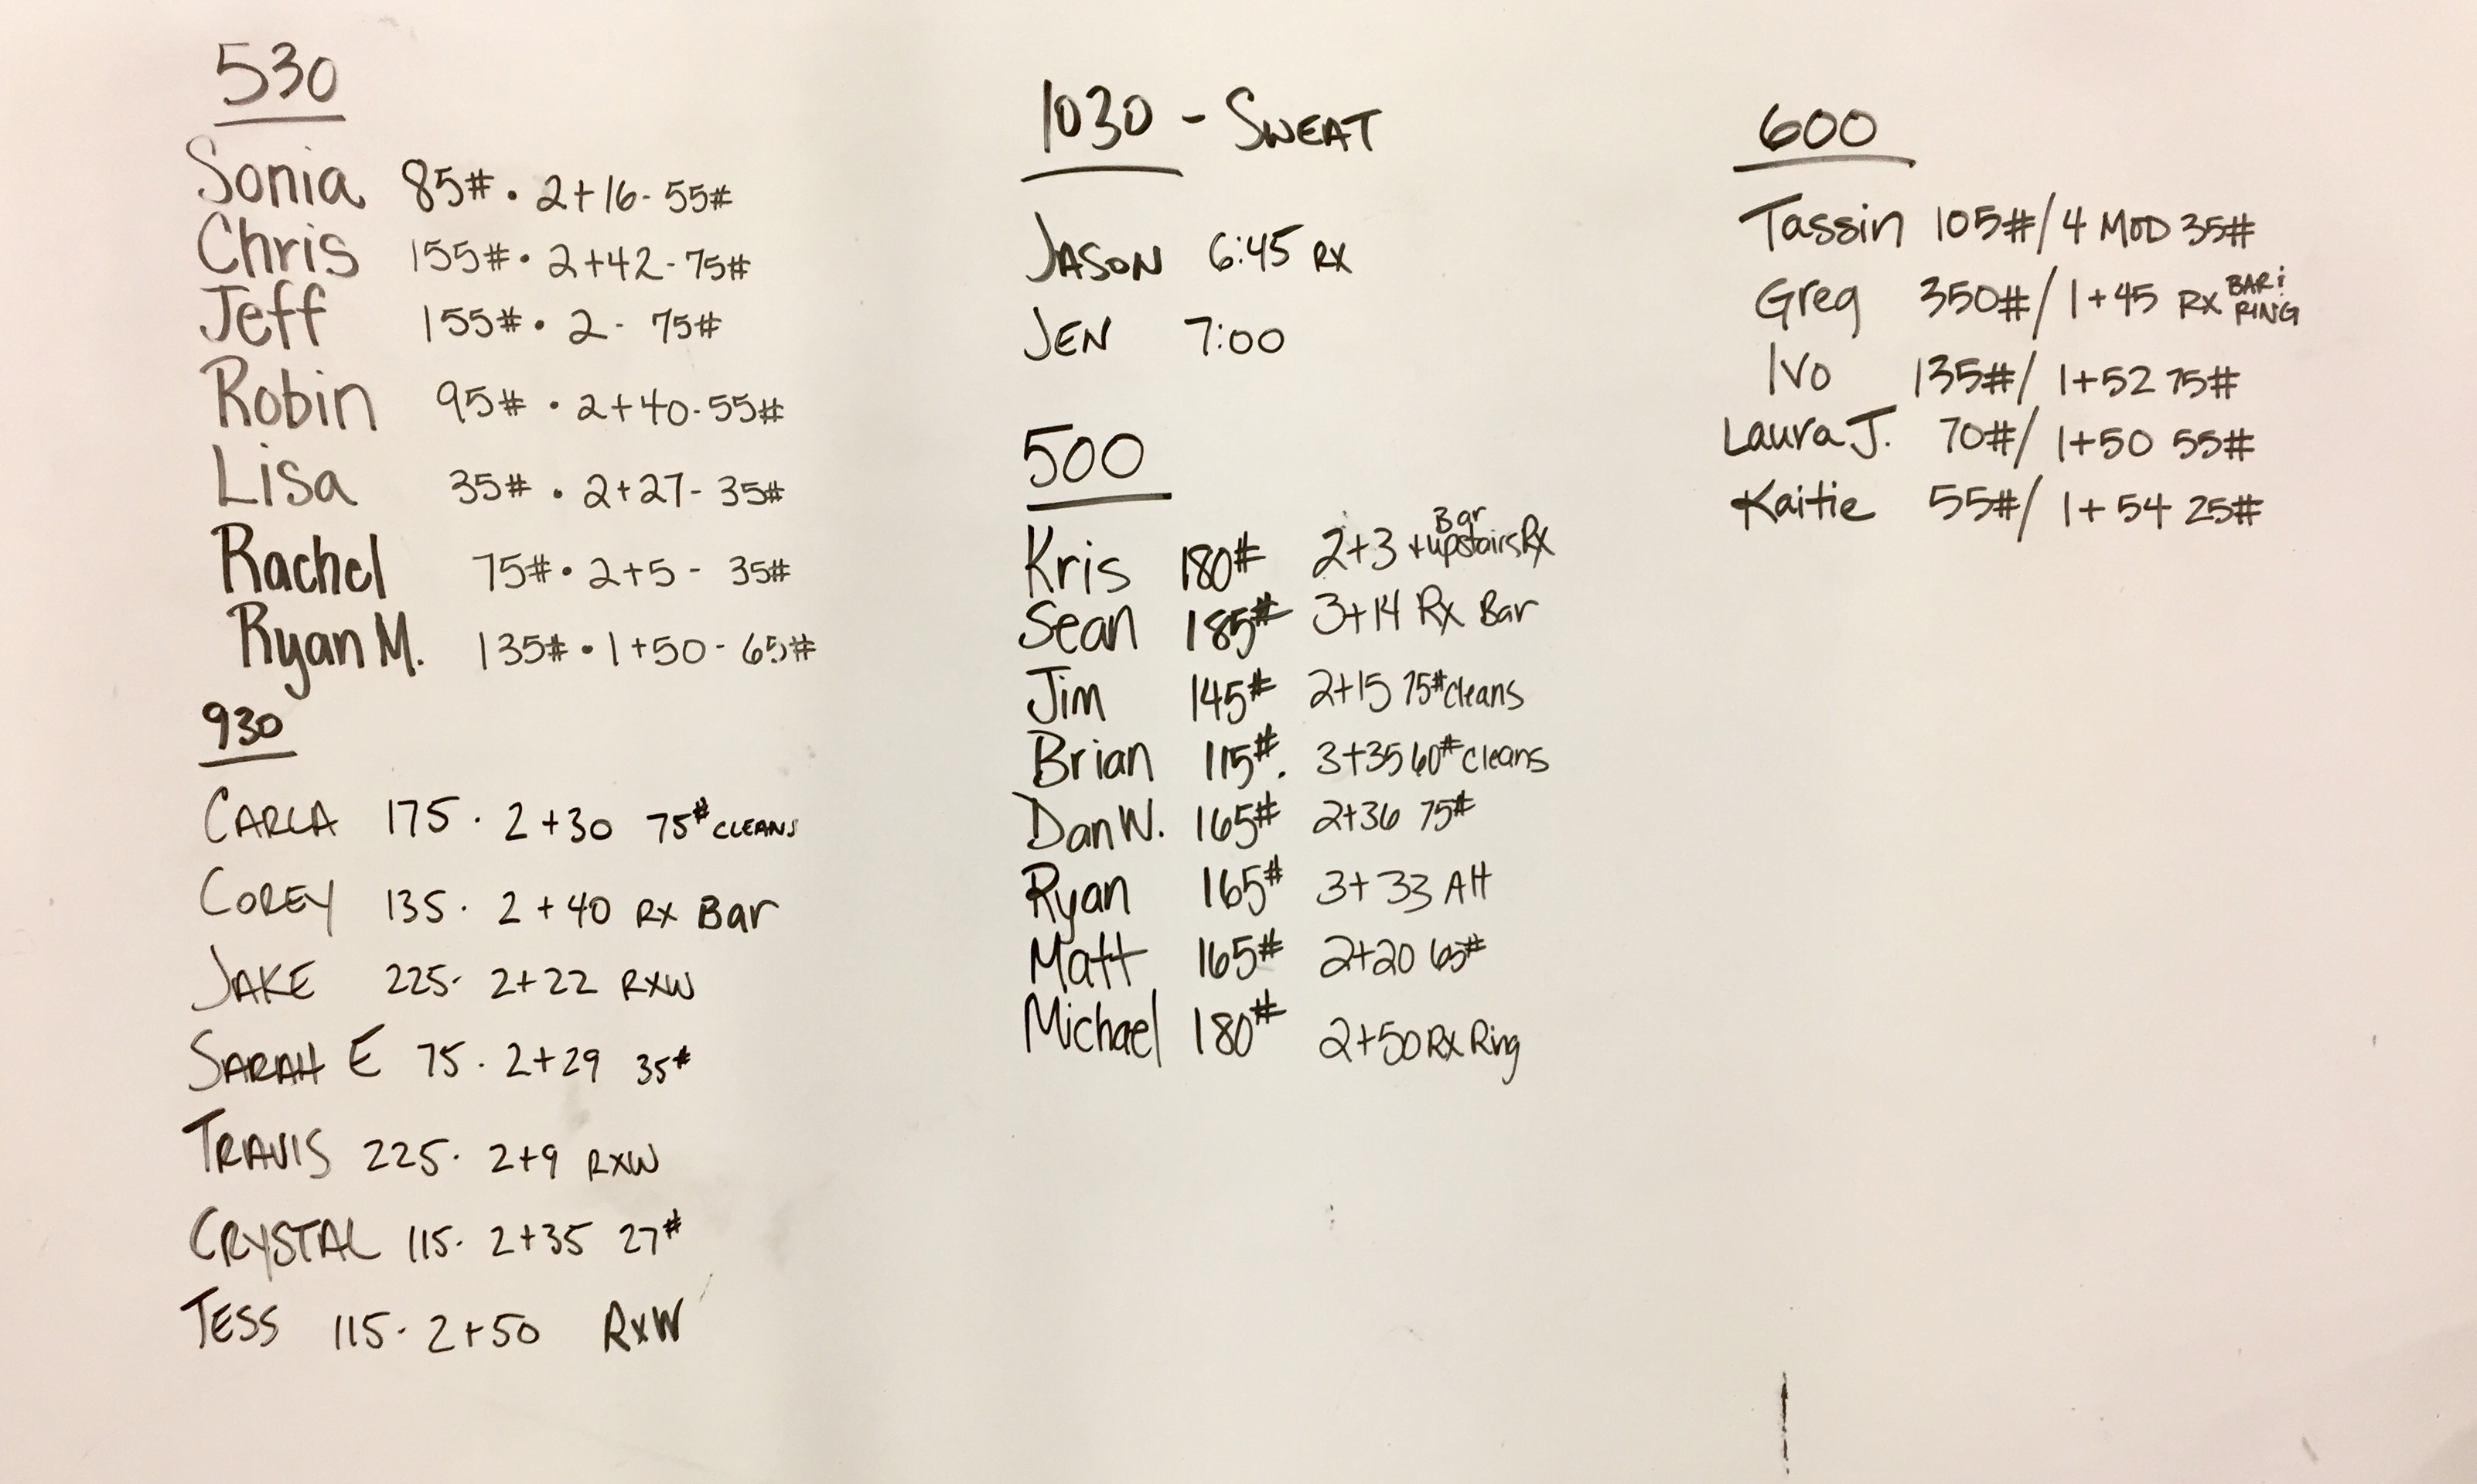 530
Sonia 85# • 2+16 - 55#
Chris 155# • 2+42 - 75#
Jeff 155# • 2 - 75#
Robin 95# • 2+40 - 55#
Lisa 35# • 2+27 - 35#
Rachel 75# • 2+5 - 35#
Ryan M. 135# • 1+50 - 65#
930
CARLA 175 • 2+30 75# CLEANS
COREY 135 • 2+40 RX Bar
JAKE 225 • 2+22 RXW
SARAH E 75 • 2+29 35#
TRAVIS 225 • 2+9 RXW
CRYSTAL 115 • 2+35 27#
TESS 115 • 2+50 RxW
1030 - SWEAT
JASON 6:45 RX
JEN 7:00
500
Kris 180# 2+3 Bar + upstairs Rx
Sean 185# 3+14 Rx Bar
Jim 145# 2+15 75# Cleans
Brian 115#. 3+35 60# Cleans
Dan W. 165# 2+36 75#
Ryan 165# 3+33
Matt 165# 2+20 65#
Michael 180# 2+50 Rx Ring
600
Tassin 105# / 4 MOD 35#
Greg 350# / 1+45 RX BAR & RING
Ivo 135# / 1+52 75#
Laura J. 70# / 1+50 55#
Kaitie 55# / 1+54 25#